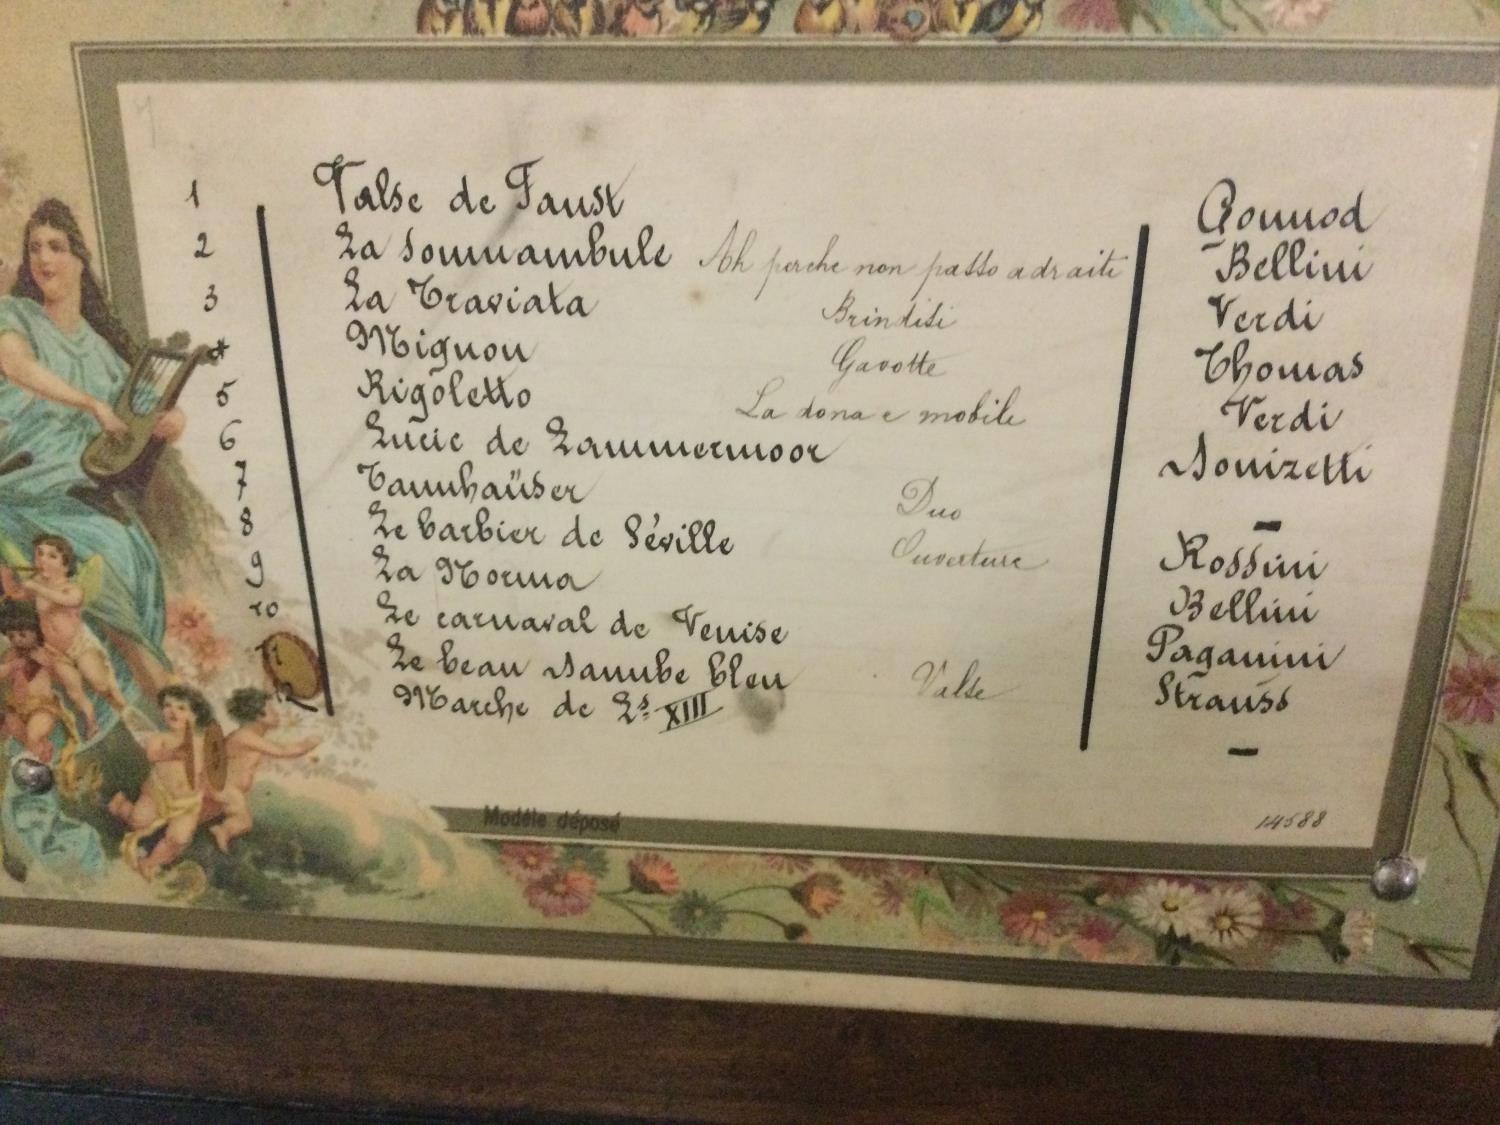 1 Valse de Faust Gounod
2 La Somnambule Ah perche non posso adraiti Bellini
3 La Traviata Brindisi Verdi
4 Mignon Gavotte Thomas
5 Rigoletto La dona e mobile Verdi
6 Lucie de Lammermoor Donizetti
7 Tannhaüser Duo -
8 Le barbier de Séville Ouverture Rossini
9 La Norma Bellini
10 Le carnaval de Venise Paganini
11 Le beau Danube bleu Valse Strauss
12 Marche de Ls XIII -
Modèle déposé
14588